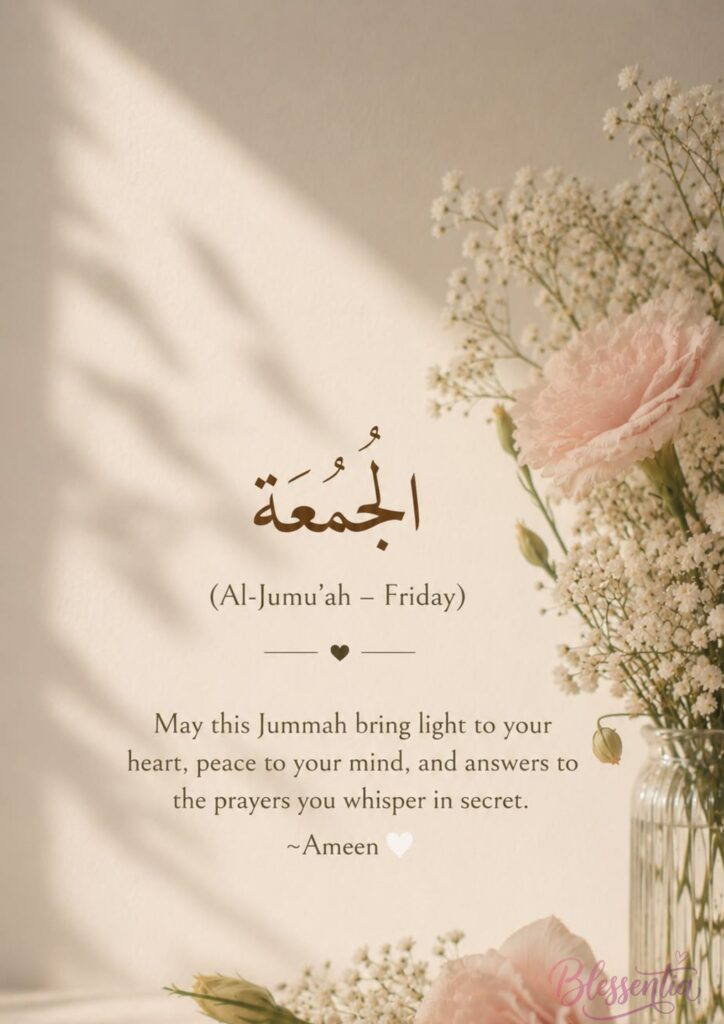 الجُمُعَة
(Al-Jumu’ah – Friday)
May this Jummah bring light to your
heart, peace to your mind, and answers to
the prayers you whisper in secret.
~Ameen 🤍
Blessentia